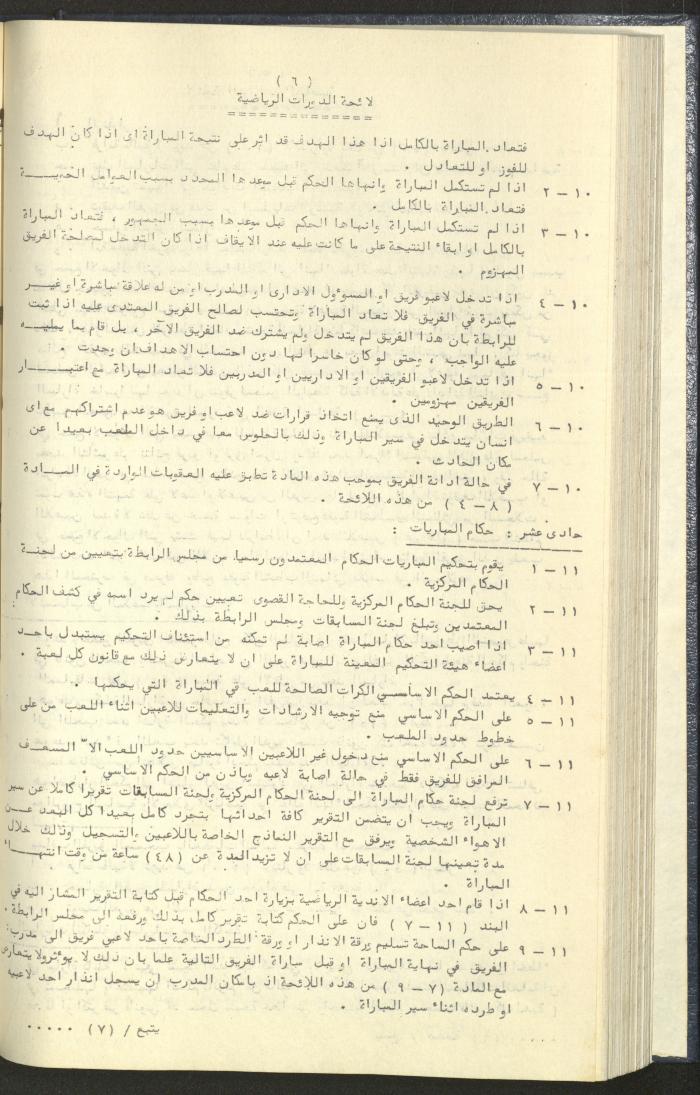 ( ٦ )
لائحة الدورات الرياضية
فتعاد المباراة بالكامل اذا هذا الهدف قد اثر على نتيجة المباراة اى اذا كان الهدف
للفوز او للتعادل .
١٠ – ٢ اذا لم تستكمل المباراة وانهاها الحكم قبل موعدها المحدد بسبب العوامل الجويـــة
فتعاد المباراة بالكامل .
١٠ – ٣ اذا لم تستكمل المباراة وانهاها الحكم قبل موعدها بسبب الجمهور ، فتعاد المباراة
بالكامل او ابقاء النتيجة على ما كانت عليه عند الايقاف اذا كان التدخل لمصلحة الفريق
المهزوم .
١٠ – ٤ اذا تدخل لاعبو فريق او المسوؤل الادارى او المدرب او من له علاقة مباشرة او غيـــر
مباشرة في الفريق فلا تعاد المباراة وتحتسب لصالح الفريق المعتدى عليه اذا ثبت
للرابطة بان هذا الفريق لم يتدخل ولم يشترك ضد الفريق الآخر ، بل قام بما يمليـــه
عليه الواجب ، وحتى لو كان خاسرا لها دون احتساب الاهداف ان وجدت .
١٠ – ٥ اذا تدخل لاعبو الفريقين او الاداريين او المدربين فلا تعاد المباراة مع اعتبـــــار
الفريقين مهزومين .
١٠ – ٦ الطريق الوحيد الذى يمنع اتخاذ قرارات ضد لاعب او فريق هو عدم اشتراكهم مع اى
انسان يتدخل في سير المباراة وذلك بالجلوس معا في داخل الملعب بعيدا عن
مكان الحادث .
١٠ – ٧ في حالة ادانة الفريق بموجب هذه المادة تطبق عليه العقوبات الواردة في المـــادة
( ٨ – ٤ ) من هذه اللائحة .
حادى عشر : حكام المباريات :
١١ – ١ يقوم بتحكيم المباريات الحكام المعتمدون رسميا من مجلس الرابطة بتعيين من لجنـة
الحكام المركزية .
١١ – ٢ يحق للجنة الحكام المركزية وللحاجة القصوى تعيين حكم لم يرد اسمه في كشف الحكام
المعتمدين وتبلغ لجنة المسابقات ومجلس الرابطة بذلك .
١١ – ٣ اذا اصيب احد حكام المباراة اصابة لم تمكنه من استئناف التحكيم يستبدل باحـد
اعضاء هيئة التحكيم المعينة للمباراة على ان لا يتعارض ذلك مع قانون كل لعبة .
١١ – ٤ يعتمد الحكم الاساسي الكرات الصالحة للعب في المباراة التي يحكمها .
١١ – ٥ على الحكم الاساسي منع توجيه الارشادات والتعليمات للاعبين اثناء اللعب من على
خطوط حدود الملعب .
١١ – ٦ على الحكم الاساسي منع دخول غير اللاعبين الاساسيين حدود اللعب الاّ المسعـف
المرافق للفريق فقط في حالة اصابة لاعبه وباذن من الحكم الاساسي .
١١ – ٧ ترفع لجنة حكام المباراة الى لجنة الحكام المركزية ولجنة المسابقات تقريرا كاملا عن سير
المباراة ويجب ان يتضمن التقرير كافة احداثها بتجرد كامل بعيدا كل البعد عـــن
الاهواء الشخصية ويرفق مع التقرير النماذج الخاصة باللاعبين والتسجيل وذلك خلال
مدة تعينها لجنة المسابقات على ان لا تزيد المدة عن (٤٨) ساعة من وقت انتهـــاء
المباراة .
١١ – ٨ اذا قام احد اعضاء الاندية الرياضية بزيارة احد الحكام قبل كتابة التقرير المشار اليه في
البند ( ١١ – ٧ ) فان على الحكم كتابة تقرير كامل بذلك ورفعه الى مجلس الرابطة .
١١ – ٩ على حكم الساحة تسليم ورقة الانذار او ورقة الطرد الخاصة باحد لاعبي فريق الى مدرب
الفريق في نهاية المباراة او قبل مباراة الفريق التالية علما بان ذلك لا يوؤثر ولا يتعارض
مع المادة (٧ – ٩ ) من هذه اللائحة اذ بامكان المدرب ان يسجل انذار احد لاعبيه
او طرده اثناء سير المباراة .
يتبع / (٧) ٠٠٠٠٠